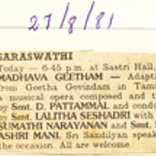 27/8/81
SARASWATHI
Today — 6-45 p.m. at Sastri Hall,
MADHAVA GEETHAM — Adapta
from Geetha Govindam in Tami
a musical opera composed and t
by Smt. D. PATTAMMAL and conducte
by Smt. LALITHA SESHADRI with
SUMATHI NARAYANAN and Smt. S
JASHRI MANI. Sri Sandilyan speak
the occasion. All are welcome